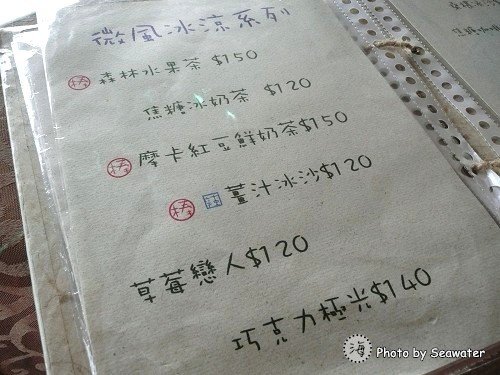 微風冰涼系列
棒 森林水果茶 $150
焦糖冰奶茶 $120
棒 摩卡紅豆鮮奶茶$150
棒 辣 薑汁冰沙$120
草莓戀人$120
巧克力極光$140
海 Photo by Seawater